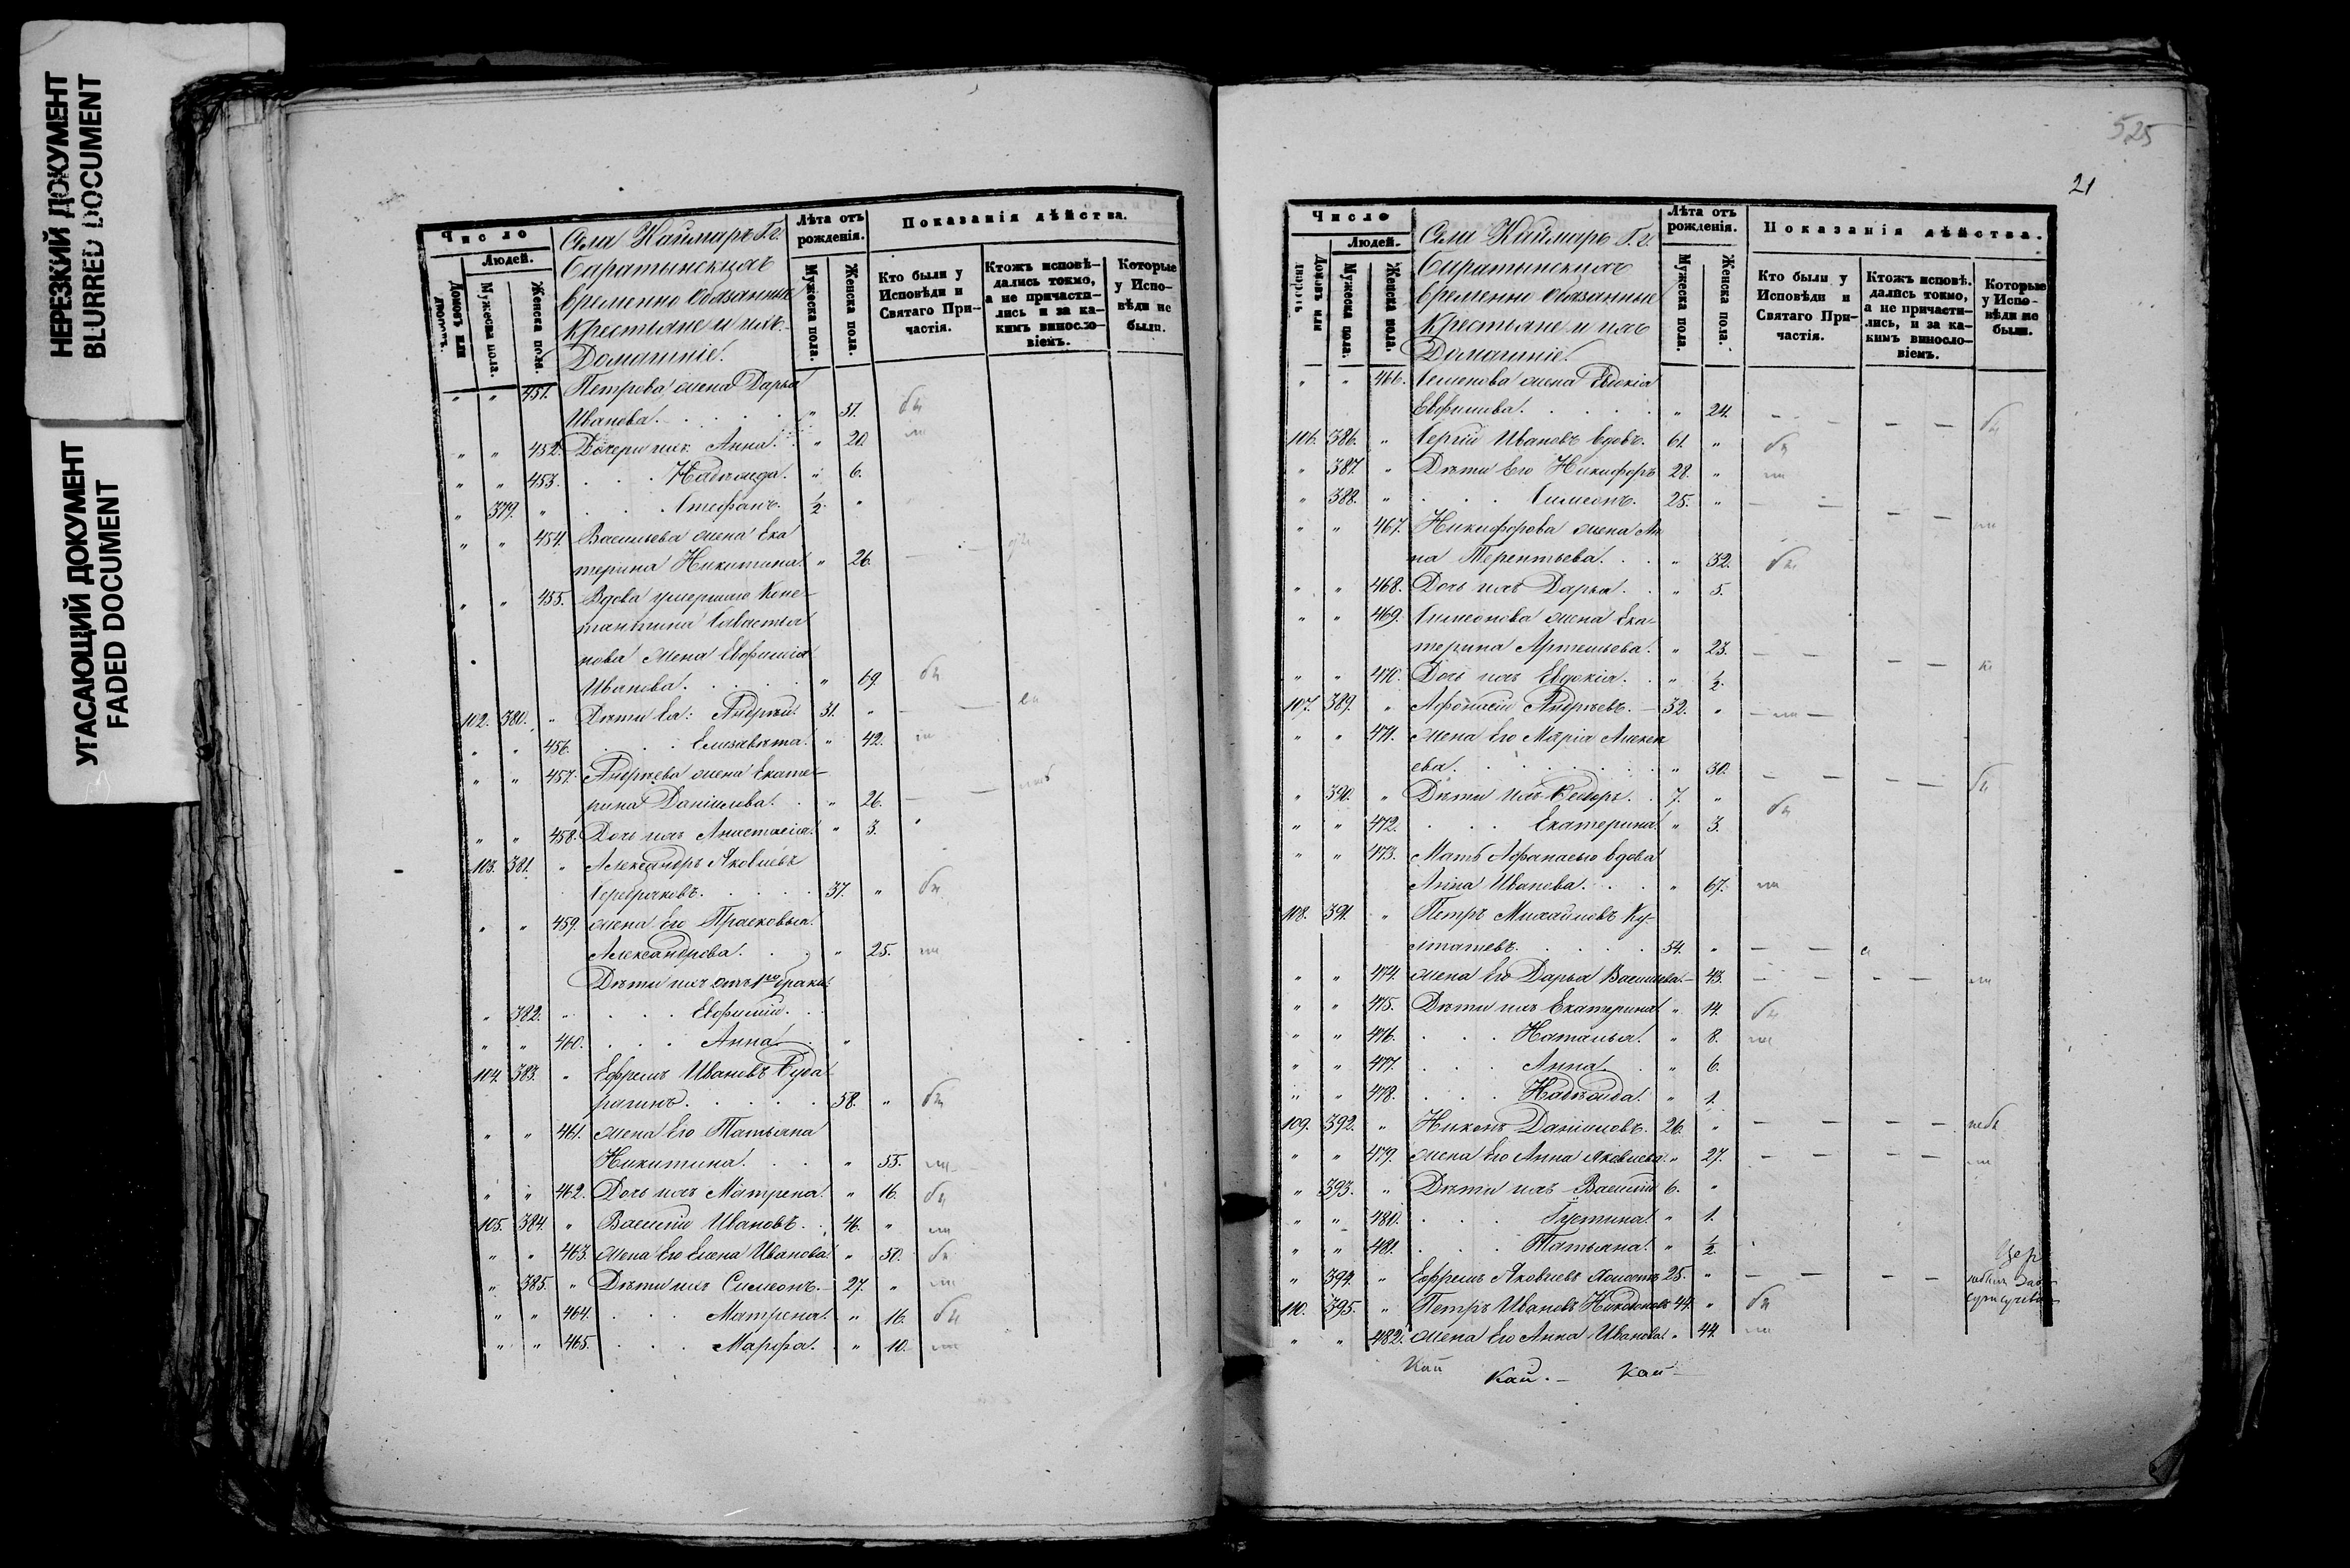 НЕРЕЗКИЙ ДОКУМЕНТ
BLURRED DOCUMENT
УГАСАЮЩИЙ ДОКУМЕНТ
FADED DOCUMENT
Число
Людей.
Домовъ или дворовъ.
Мужеска пола.
Женска пола.
Села Каймаръ Г. г.
Баратынскихъ
временно обязанные
крестьяне и ихъ
Домашніе.
Лѣта отъ рожденія.
Мужеска пола.
Женска пола.
Показанія дѣйства.
Кто были у Исповѣди и Святаго Причастія.
Ктожъ исповѣдались токмо, а не причастились и за какимъ винословіемъ.
Которые у Исповѣди не были.
" " 451. Петрова жена Дарья
Иванова. " 51. бы
" " 452. Дочери ихъ: Анна. " 20.
" " 453. Надежда. " 6.
" 379. " Стефанъ. 1/2 "
" " 454. Васильева жена Ека
терина Никитина. " 26.
" " 455. Вдова умершаго Конс-
тантина Савастья
нова жена Евфимія
Иванова. " 69. бы
102. 380. " Дѣти Ея: Андрей. 31. "
" " 456. Елизавета. " 42.
" " 457. Андреева жена Екате-
рина Даніилова. " 26.
" " 458. Дочь ихъ Анастасія. " 3.
103. 381. " Александръ Яковлевъ
Серебряковъ. 37. " бы
" " 459. жена Его Прасковья
Александрова. " 25.
Дѣти ихъ отъ 1го брака
" 382. " Евфимій.
" " 460. Анна. "
104. 383. " Ефремъ Ивановъ Суда
рагинъ. 58. " бы
" " 461. жена Его Татьяна
Никитина. " 55.
" " 462. Дочь ихъ Матрена. " 16. бы
105. 384. " Василій Ивановъ. 46. "
" " 463. жена Его Елена Иванова. " 50. бы
" 385. " Дѣти ихъ Симеонъ. 27. "
" " 464. Матрена. " 16. бы
" " 465. Марфа. " 10.
525
21
Число
Людей.
Домовъ или дворовъ
Мужеска пола.
Женска пола.
Села Каймаръ Г. г.
Баратынскихъ
временно обязанные
крестьяне и ихъ
Домашніе.
Лѣта отъ рожденія.
Мужеска пола.
Женска пола.
Показанія дѣйства.
Кто были у Исповѣди и Святаго Причастія.
Ктожъ исповѣдались токмо, а не причастились, и за какимъ винословіемъ.
Которые у Исповѣди не были.
" " 466. Семенова жена Евдокія
Евфимова. " 24.
106. 386. " Сергій Ивановъ вдовъ. 61. " бы
" 387. " Дѣти Его Никифоръ 28. "
" 388. " Симеонъ. 25. "
" " 467. Никифорова жена Ан
на Терентьева. " 32. бы
" " 468. Дочь ихъ Дарья. " 5.
" " 469. Симеонова жена Ека-
терина Артемьева. " 23.
" " 470. Дочь ихъ Евдокія. " 1/2
107. 389. " Афонасій Андреевъ. 32. "
" " 471. жена Его Марія Алексе
ева. " 30.
" 390. " Дѣти ихъ Ѳеодоръ. 7. "
" " 472. Екатерина. " 3.
" " 473. Мать Афанасью вдова
Анна Иванова. " 67.
108. 391. " Петръ Михайловъ
54. "
" " 474. жена Его Дарья Васильева. 43.
" " 475. Дѣти ихъ Екатерина " 14. бы
" " 476. Наталья. " 8.
" " 477. Анна. " 6.
" " 478. Надежда. " 1.
109. 392. " Никонъ Даниловъ. 26. "
" " 479. жена Его Анна Яковлева. " 27.
" 393. " Дѣти ихъ Василій 6. "
" " 480. Іустина. " 1.
" " 481. Татьяна. " 1/2
" 394. " Ефремъ Яковлевъ 25. "
110. 395. " Петръ Ивановъ Никоновъ 44. " бы
" " 482. жена Его Анна Иванова. " 44.
Кай Кай. – Кай –